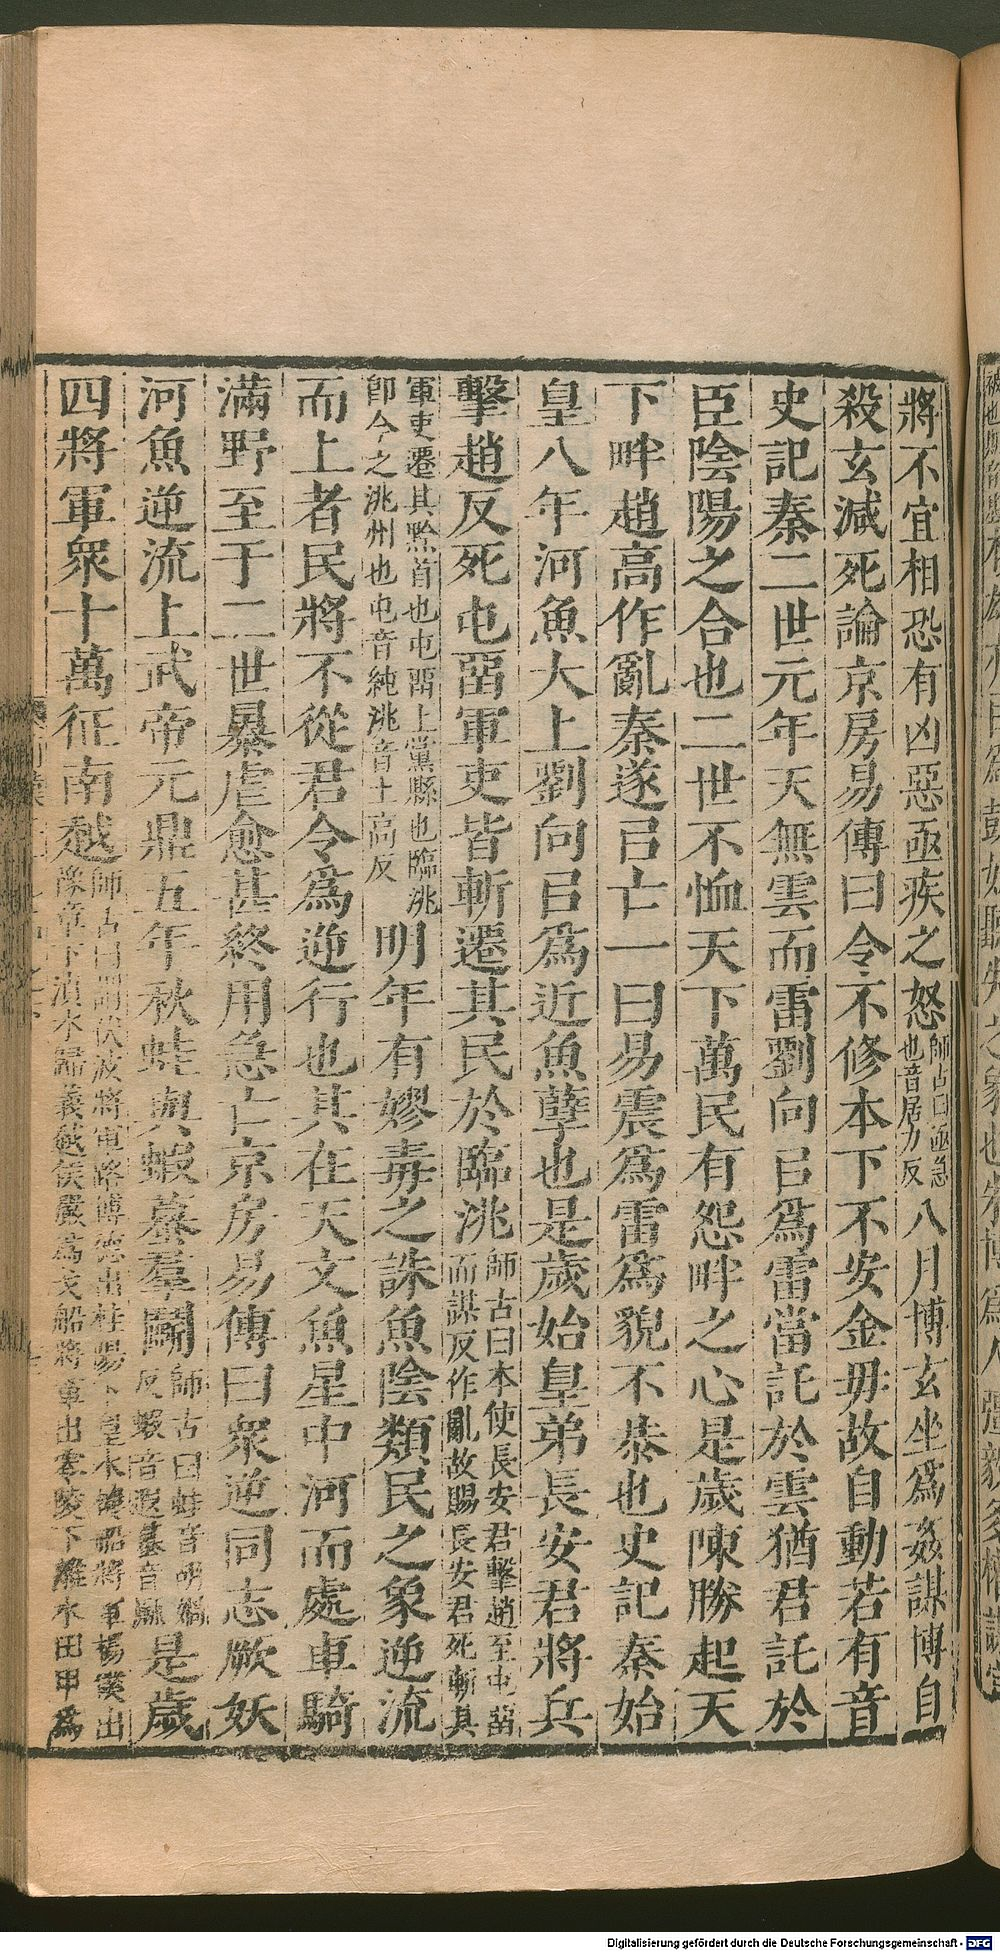 將不宜相恐有凶惡亟疾之怒師古曰亟急也音居力反八月博玄坐爲姦謀博自
殺玄減死論京房易傳曰令不修本下不安金毋故自動若有音
史記秦二世元年天無雲而雷劉向㠯爲雷當託於雲猶君託於
臣陰陽之合也二世不恤天下萬民有怨畔之心是歲陳勝起天
下畔趙高作亂秦遂㠯亡一曰易震爲雷爲貌不恭也史記秦始
皇八年河魚大上劉向㠯爲近魚孽也是歲始皇弟長安君將兵
擊趙反死屯留軍吏皆斬遷其民於臨洮師古曰本使長安君擊趙至屯留而謀反作亂故賜長安君死斬其
軍吏遷其黔首也屯留上黨縣也臨洮卽今之洮州也屯音純洮音土高反明年有嫪毐之誅魚陰類民之象逆流
而上者民將不從君令爲逆行也其在天文魚星中河而處車騎
滿野至于二世暴虐愈甚終用急亡京房易傳曰衆逆同志厥妖
河魚逆流上武帝元鼎五年秋蛙與蝦蟇羣鬭師古曰蛙音胡媧反蝦音遐蟇音麻是歲
四將軍衆十萬征南越師古曰謂伏波將軍路博德出桂陽下湟水樓船將軍楊僕出豫章下湞水歸義越侯嚴爲戈船將軍出零陵下離水田甲爲
Digitalisierung gefördert durch die Deutsche Forschungsgemeinschaft - DFG